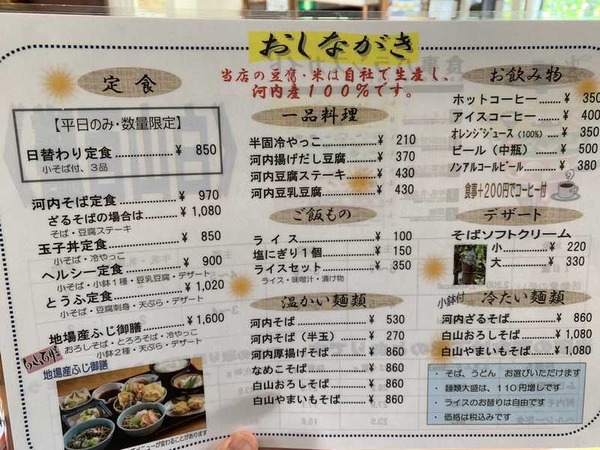 おしながき
当店の豆腐・米は自社で生産し、
河内産100%です。
定食
【平日のみ・数量限定】
日替わり定食……………¥ 850
小そば付、3品
河内そば定食……………¥ 970
ざるそばの場合は……¥ 1,080
そば・豆腐ステーキ
玉子丼定食………………¥ 850
小そば・冷やっこ
ヘルシー定食……………¥ 900
小そば・小鉢1種・豆乳豆腐・デザート
とうふ定食………………¥ 1,020
小そば・豆腐刺身・天ぷら・デザート
地場産ふじ御膳…………¥ 1,600
おろしそば・とろろそば・冷やっこ
小鉢2種・天ぷら・デザート
地場産ふじ御膳
メニューが変わることがあります
一品料理
半固冷やっこ……………¥ 210
河内揚げだし豆腐………¥ 370
河内豆腐ステーキ………¥ 430
河内豆乳豆腐……………¥ 430
ご飯もの
ライス……………………¥ 100
塩にぎり1個……………¥ 150
ライスセット……………¥ 350
ライス・味噌汁・漬け物
温かい麺類
河内そば…………………¥ 530
河内そば（半玉）………¥ 270
河内厚揚げそば…………¥ 860
なめこそば………………¥ 860
白山おろしそば…………¥ 860
白山やまいもそば………¥ 860
お飲み物
ホットコーヒー…………¥ 350
アイスコーヒー…………¥ 400
オレンジジュース（100%）……¥ 350
ビール（中瓶）…………¥ 500
ノンアルコールビール……¥ 380
食事+200円でコーヒー付
デザート
そばソフトクリーム
小……………¥ 220
大……………¥ 330
小鉢付 冷たい麺類
河内ざるそば……………¥ 860
白山おろしそば…………¥ 1,080
白山やまいもそば………¥ 1,080
・そば、うどん お選びいただけます
・麺類大盛は、110円増しです
・ライスのお替りは自由です
・価格は税込みです